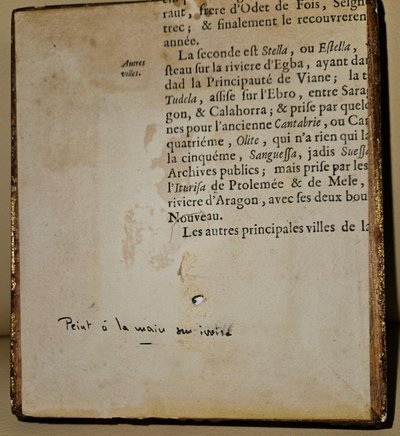 raut, frere d'Odet de Fois, Seign
trec; & finalement le recouvreren
année.
La seconde est Stella, ou Estella,
Autres
villes.
steau sur la riviere d'Egba, ayant dan
dad la Principauté de Viane; la t
Tudela, assise sur l'Ebro, entre Sara
gon, & Calahorra; & prise par quel
nes pour l'ancienne Cantabrie, ou Can
quatriéme, Olite, qui n'a rien qui la
la cinquéme, Sanguessa, jadis Suess
Archives publics; mais prise par les
l'Iturisa de Ptolemée & de Mele,
riviere d'Aragon, avec ses deux bou
Nouveau.
Les autres principales villes de la
Peint à la main sur ivoire